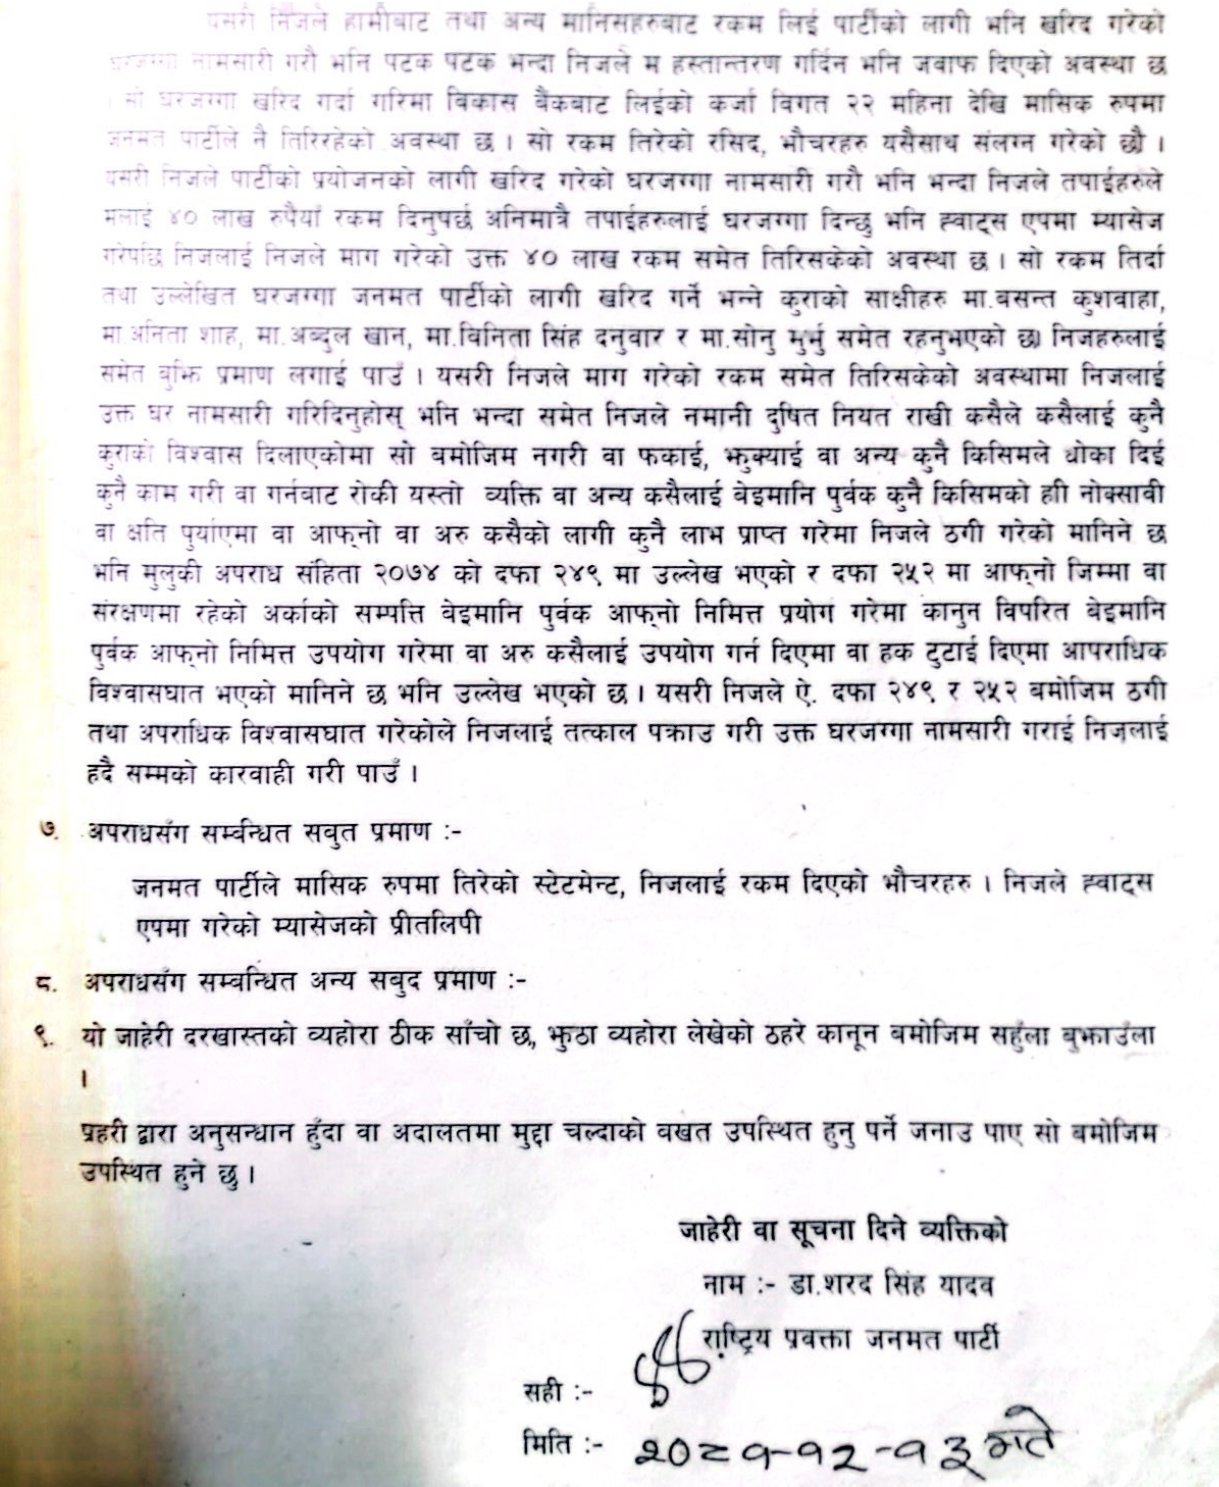 यसरी निजले हामीबाट तथा अन्य मानिसहरुबाट रकम लिई पार्टीको लागी भनि खरिद गरेको
घरजग्गा नामसारी गरौ भनि पटक पटक भन्दा निजले म हस्तान्तरण गर्दिन भनि जवाफ दिएको अवस्था छ
। सो घरजग्गा खरिद गर्दा गरिमा विकास बैंकबाट लिईको कर्जा विगत २२ महिना देखि मासिक रुपमा
जनमत पार्टीले नै तिरिरहेको अवस्था छ । सो रकम तिरेको रसिद, भौचरहरु यसैसाथ संलग्न गरेको छौ ।
यसरी निजले पार्टीको प्रयोजनको लागी खरिद गरेको घरजग्गा नामसारी गरौ भनि भन्दा निजले तपाईहरुले
मलाई ४० लाख रुपैयाँ रकम दिनुपर्छ अनिमात्रै तपाईहरुलाई घरजग्गा दिन्छु भनि ह्वाट्स एपमा म्यासेज
गरेपछि निजलाई निजले माग गरेको उक्त ४० लाख रकम समेत तिरिसकेको अवस्था छ । सो रकम तिर्दा
तथा उल्लेखित घरजग्गा जनमत पार्टीको लागी खरिद गर्ने भन्ने कुराको साक्षीहरु मा.बसन्त कुशवाहा,
मा.अनिता शाह, मा.अब्दुल खान, मा.विनिता सिंह दनुवार र मा.सोनु मुर्मु समेत रहनुभएको छ। निजहरुलाई
समेत बुझि प्रमाण लगाई पाउँ । यसरी निजले माग गरेको रकम समेत तिरिसकेको अवस्थामा निजलाई
उक्त घर नामसारी गरिदिनुहोस् भनि भन्दा समेत निजले नमानी दुषित नियत राखी कसैले कसैलाई कुनै
कुराको विश्वास दिलाएकोमा सो बमोजिम नगरी वा फकाई, झुक्याई वा अन्य कुनै किसिमले धोका दिई
कुनै काम गरी वा गर्नबाट रोकी यस्तो व्यक्ति वा अन्य कसैलाई बेइमानि पुर्वक कुनै किसिमको हाी नोक्सावी
वा क्षति पुर्याएमा वा आफ्नो वा अरु कसैको लागी कुनै लाभ प्राप्त गरेमा निजले ठगी गरेको मानिने छ
भनि मुलुकी अपराध संहिता २०७४ को दफा २४९ मा उल्लेख भएको र दफा २५२ मा आफ्नो जिम्मा वा
संरक्षणमा रहेको अर्काको सम्पत्ति वेइमानि पुर्वक आफ्नो निमित्त प्रयोग गरेमा कानुन विपरित बेइमानि
पुर्वक आफ्नो निमित्त उपयोग गरेमा वा अरु कसैलाई उपयोग गर्न दिएमा वा हक टुटाई दिएमा आपराधिक
विश्वासघात भएको मानिने छ भनि उल्लेख भएको छ । यसरी निजले ऐ. दफा २४९ र २५२ बमोजिम ठगी
तथा अपराधिक विश्वासघात गरेकोले निजलाई तत्काल पक्राउ गरी उक्त घरजग्गा नामसारी गराई निजलाई
हदै सम्मको कारवाही गरी पाउँ ।
७. अपराधसँग सम्बन्धित सबुत प्रमाण :-
जनमत पार्टीले मासिक रुपमा तिरेको स्टेटमेन्ट, निजलाई रकम दिएको भौचरहरु । निजले ह्वाट्स
एपमा गरेको म्यासेजको प्रीतलिपी
८. अपराधसँग सम्बन्धित अन्य सबुद प्रमाण :-
९. यो जाहेरी दरखास्तको व्यहोरा ठीक साँचो छ, झुठा व्यहोरा लेखेको ठहरे कानून बमोजिम सहुँला बुझाउँला
।
प्रहरी द्वारा अनुसन्धान हुँदा वा अदालतमा मुद्दा चल्दाको वखत उपस्थित हुनु पर्ने जनाउ पाए सो बमोजिम
उपस्थित हुने छु ।
जाहेरी वा सूचना दिने व्यक्तिको
नाम :- डा.शरद सिंह यादव
राष्ट्रिय प्रवक्ता जनमत पार्टी
सही :-
मिति :- २०८१-१२-१३ गते